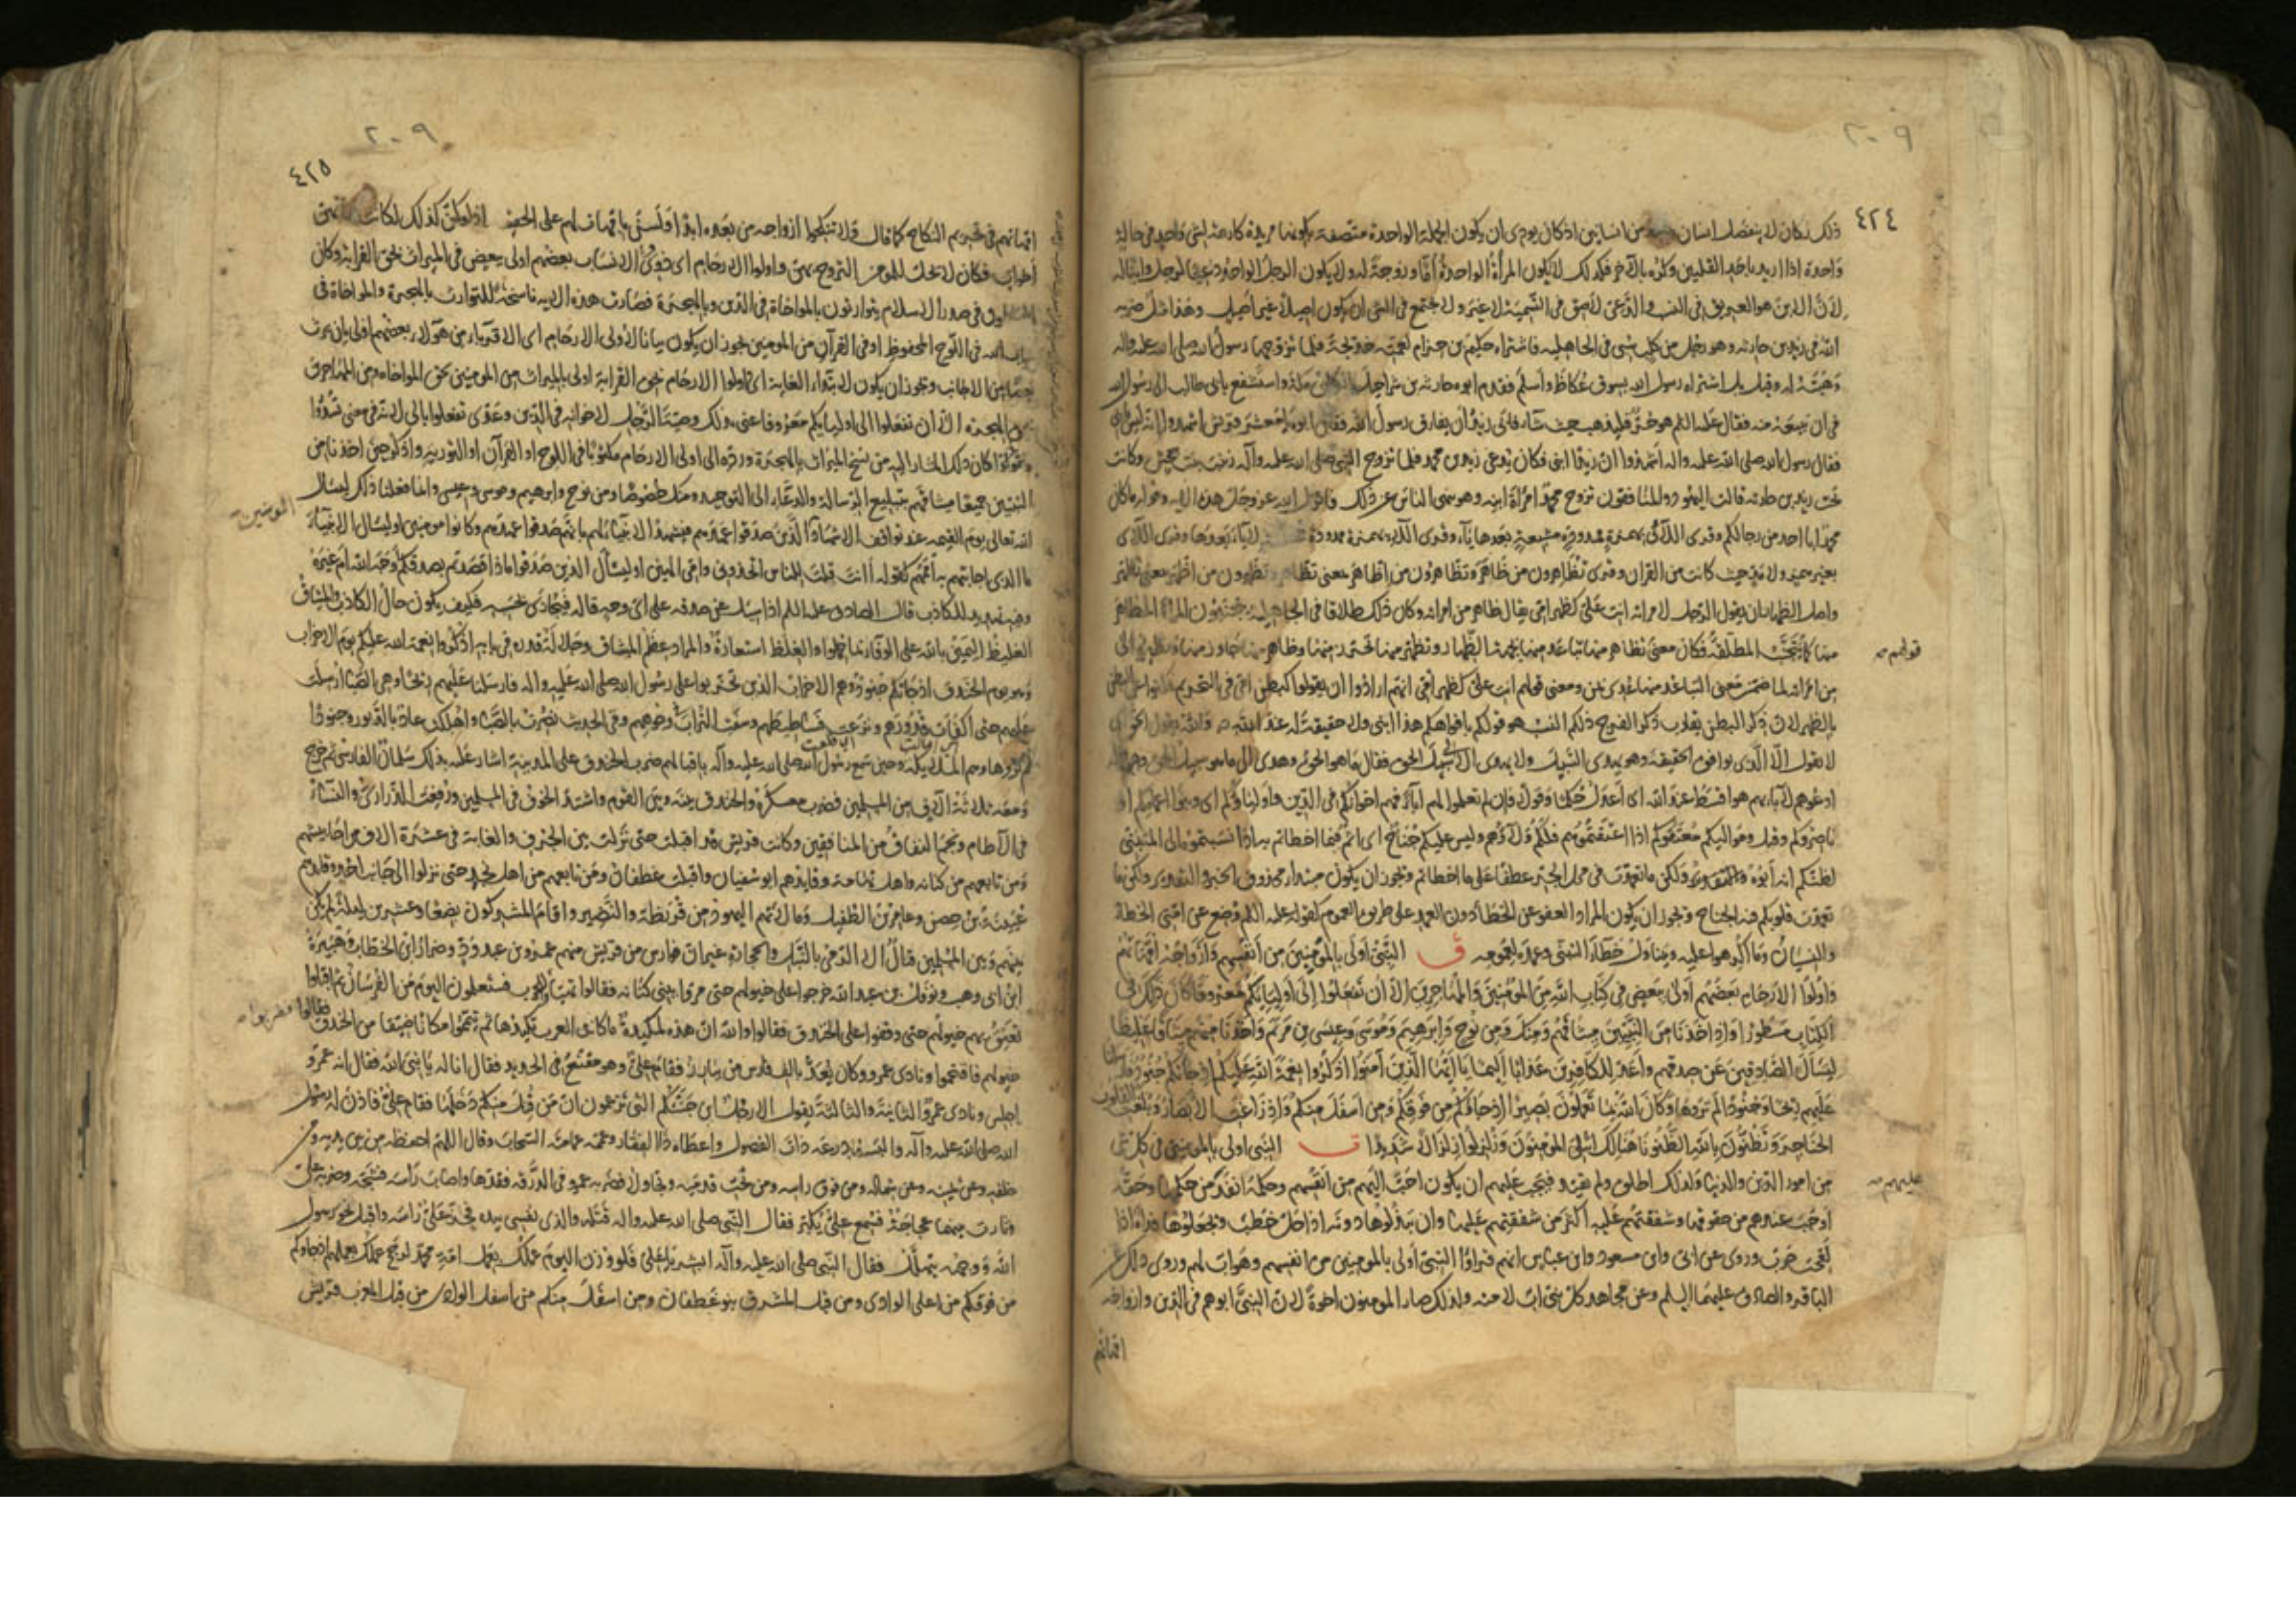 ٢٠٩
٤٢٤
ذلك لكان لا ينفصل انسان من انسانين اذ كان يودى ان يكون الجملة الواحدة متصفة بكونها مريدة كارهة لشى واحد فى حالة
واحدة اذا اريد باحد القلبين وكره بالآخر فكذلك لا يكون المرأة الواحدة امّا وزوجة له ولا يكون الرجل الواحد دعيا لرجل وابنا له
لانّ الابن هو العريق فى النسب والدّعى لاصق فى التّسمية لا غير ولا يجتمع فى الشى ان يكون اصيلا غير اصيل وهذا مثل ضربه
الله فى زيد بن حارثه وهو رجل من كلب سبى فى الجاهليه فاشتراه حكيم بن حزام لعمّته خديجة فلما تزوجها رسول الله صلى الله عليه واله
وهبته له وقيل بل اشتراه رسول الله بسوق عكاظ واسلم فقدم ابوه حارثه بن شراحيل مكة واستشفع بابى طالب الى رسول الله
فى ان يبيعه منه فقال عليه السلم هو حرّ فليذهب حيث شاء فابى زيد أن يفارق رسول الله فقال ابوه يا معشر قريش اشهدوا انه ليس ابنى
فقال رسول الله صلى الله عليه واله اشهدوا انّ زيدا ابنى فكان يدعى زيد بن محمد فلما تزوج النبى صلى الله عليه وآله زينب بنت جحش وكانت
تحت زيد بن حارثه قالت اليهود والمنافقون تزوج محمد امرأة ابنه وهو ينهى الناس عن ذلك فانزل الله عز وجل هذه الايه وقوله ما كان
محمد ابا احد من رجالكم وقرى اللائى بهمزة مشبعة بعدها ياء وقرى اللاء بهمزة ممدودة بعدها وقرى اللاى
بغير همز ولا مد حيث كانت من القران وقرى تظاهرون من ظاهر وتظّاهرون من اظّاهر بمعنى تظاهر وتظهرون من اظهر بمعنى تظهر
واصل الظهار ان يقول الرجل لامراته انت علىّ كظهر امّى يقال ظاهر من امراته وكان ذلك طلاقا فى الجاهلية يجتنبون المراة المظاهر
منها كما يتجنب المطلّقة فكان معنى تظاهر منها تباعد منها بجهة الظّهار وتظهّر منها تحرّز منها وظاهر منها حاذر منها ونظيره آلى
قولهم صح
من امراته لما ضمّن معنى التباعد منها عدى بمن ومعنى قولهم انت علىّ كظهر امّى انهم ارادوا ان يقولوا كبطن امّى فى التحريم فكنوا عن البطن
بالظهر لان ذكر البطن يقارب ذكر الفرج ذلكم النسب هو قولكم بافواهكم هذا ابنى ولا حقيقة له عند الله والله يقول الحق اى
لا يقول الا الّذى يوافق الحقيقة وهو يهدى السّبيل ولا يهدى الا سبيل الحق فقال ما هو الحق وهدى الى ما هو سبيل الحق وهو قوله
ادعوهم لآبائهم هو اقسط عند الله اى اعدل حكما وقولا فان لم تعلموا لهم آباء فهم اخوانكم فى الدّين واولياؤكم اى وبنوا اعمامكم او
ناصروكم وقيل ومواليكم معتقوكم اذا اعتقتموهم فلكم ولاؤهم وليس عليكم جناح اى اثم فيما اخطأتم به اذا نسبتموه الى المتبنّى
لظنّكم انه أبوه ولكن ما تعمدت فى محل الجر عطفا على ما اخطأتم ويجوز ان يكون مبتدا محذوف الخبر والتقدير ولكن ما
تعمدت قلوبكم فيه الجناح ويجوز ان يكون المراد العفو عن الخطأ دون العمد على طريق العموم كقوله عليه السلم وضع عن امتى الخطأ
والنسيان وما اكرهوا عليه ويتناول خطأ التبنى وعمده لعمومه ق النّبى أولى بالمؤمنين من أنفسهم وأزواجه أمّهاتهم
وأولوا الأرحام بعضهم أولى ببعض فى كتاب الله من المؤمنين والمهاجرين إلا أن تفعلوا إلى أوليائكم معروفا كان ذلك فى
الكتاب مسطورا وإذ أخذنا من النبيّين ميثاقهم ومنك ومن نوح وإبرهيم وموسى وعيسى بن مريم وأخذنا منهم ميثاقا غليظا
ليسأل الصّادقين عن صدقهم وأعدّ للكافرين عذابا أليما يا أيّها الّذين آمنوا اذكروا نعمة الله عليكم إذ جاءتكم جنود فأرسلنا
عليهم ريحا وجنودا لم تروها وكان الله بما تعملون بصيرا إذ جاؤكم من فوقكم ومن أسفل منكم وإذ زاغت الأبصار وبلغت القلوب
الحناجر وتظنّون بالله الظّنونا هنالك ابتلى المؤمنون وزلزلوا زلزالا شديدا ت النبى اولى بالمومنين فى كل شى
من امور الدّين والدنيا ولذلك اطلق ولم يقيد فيجب عليهم ان يكون احبّ اليهم من انفسهم وحكمه انفذ من حكمها وحقّه
عليهم صح
اوجب عندهم من حقوقها وشفقتهم عليه اكثر من شفقتهم عليها وان يبذلوها دونه اذا حل خطب ويجعلوها فداءه اذا
لقحت حرب وروى عن ابى وابن مسعود وابن عباس انهم قراوا النبىّ أولى بالمومنين من انفسهم وهو اب لهم وروى ذلك عن
الباقر والصادق عليهما السلم وعن مجاهد كل نبى اب لامته ولذلك صار المومنون اخوة لان النبىّ ابوهم فى الدّين وازواجه
امهاتهم
٢٠٩
٤٢٥
امهاتهم فى تحريم النكاح كما قال ولا تنكحوا ازواجه من بعده ابدا ولسن بامهات لهم على الحقيقة اذ لو كنّ كذلك لكانت بناتهن
أخوات فكان لا يحل للمومن التزوج بهن واولوا الارحام اى ذوو الانساب بعضهم اولى ببعض فى الميراث بحق القرابة وكان
المسلمون فى صدر الاسلام يتوارثون بالمواخاة فى الدّين وبالهجرة فصارت هذه الايه ناسخة للتوارث بالهجرة والمواخاة فى
كتاب الله فى اللّوح المحفوظ او فى القرآن من المومنين يجوز ان يكون بيانا لأولى الارحام اى الاقرباء من هولاء بعضهم اولى بان يرث
بعضا من الاجانب ويجوز ان يكون لابتداء الغاية اى اولوا الارحام بحق القرابة اولى بالميراث من المومنين بحق المواخاة ومن المهاجرين
بحق الهجرة الّا أن تفعلوا الى اوليائكم معروفا عنى ذلك وصيّة الرّجل لاخوانه فى الدّين وعدّى تفعلوا بالى لانه فى معنى تسدّوا
كان ذلك المشار اليه من نسخ الميراث بالهجرة وردّه الى اولى الارحام مكتوبا فى اللوح او القرآن او التورية واذكر حين اخذنا من
النّبيّين جميعا ميثاقهم بتبليغ الرّسالة والدّعاء الى التوحيد ومنك خصوصا ومن نوح وابرهيم وموسى وعيسى وانما فعلنا ذلك ليسأل
الله تعالى يوم القيمه عند تواقف الاشهاد الّذين صدقوا عهدهم فيشهد الانبياء لهم بانهم صدقوا عهدهم وكانوا مومنين او ليسأل الانبياء
المومنين
ما الذى اجابتهم به أممهم كقوله أانت قلت للناس اتخذونى وامّى الهين او ليسأل الذين صدقوا ماذا قصدتم بصدقكم أوجه الله ام غيره
وفيه تهديد للكاذب قال الصادق عليه السلم اذا سئل عن صدقه على اىّ وجه قاله فيجازى بحسبه فكيف يكون حال الكاذب والميثاق
الغليظ اليمين بالله على الوفاء بما حملوا والغلظ استعارة والمراد عظم الميثاق وجلالة قدره فى بابه اذكروا نعمة الله عليكم يوم الاحزاب
وهو يوم الخندق اذ جاءتكم جنود وهم الاحزاب الذين تحزبوا على رسول الله صلى الله عليه واله فارسلنا عليهم ريحا وهى الصّبا ارسلت
عليهم حتى اكفأت قدورهم ونزعت فساطيطهم وسفت التّراب فى وجوههم وفى الحديث نصرت بالصّبا واهلكت عاد بالدّبور وجنودا
لم تروها وهم الملائكة وحين سمع رسول الله صلى الله عليه وآله باقبالهم ضرب الخندق على المدينة اشار عليه بذلك سلمان الفارسى ثم خرج
ومعه ثلاثة آلاف من المسلمين فضرب معسكره والخندق بينه وبين القوم واشتدّ الخوف فى المسلمين ورفعت الذّرارى والنّساء
فى الآطام ونجم النفاق من المنافقين وكانت قريش قد اقبلت حتى نزلت بين الجرف والغابة فى عشرة آلاف من احابيشهم
ومن تابعهم من كنانه واهل تهامة وقايدهم ابو سفيان واقبلت غطفان ومن تابعهم من اهل نجد حتى نزلوا الى جانب احد وقايدهم
عيينة بن حصن وعامر بن الطّفيل ومالأتهم اليهود من قريظة والنّضير واقام المشركون بضعا وعشرين ليلة لم يكن
بينهم وبين المسلمين قتال الا الرّمى بالنّبل والحجارة غير ان فوارس من قريش منهم عمرو بن عبد ودّ وضرار بن الخطاب وهبيرة
ابن ابى وهب ونوفل بن عبد الله خرجوا على خيولهم حتى مرّوا ببنى كنانه فقالوا تهيّأوا للحرب فستعلمون اليوم من الفرسان ثم اقبلوا
تعنق بهم خيولهم حتى وقفوا على الخندق فقالوا والله انّ هذه لمكيدة ما كانت العرب تكيدها ثم تيمّموا مكانا ضيّقا من الخندق
فضربوا صح
خيولهم فاقتحموا ونادى عمرو وكان يعدّ بالف فارس من يبارز فقام علىّ وهو مقنّع فى الحديد فقال انا له يا نبىّ الله فقال انه عمرو
اجلس ونادى عمرو الثانية والثالثة يقول الا رجل اين جنّتكم التى تزعمون انّ من قتل منكم دخلها فقام علىّ فاذن له رسول
الله صلى الله عليه وآله والبسه درعه ذات الفضول واعطاه ذا الفقار وعمّمه عمامته السّحاب وقال اللهمّ احفظه من بين يديه ومن
خلفه وعن يمينه وعن شماله ومن فوق راسه ومن تحت قدميه وتجاولا فضربه عمرو فى الدّرقه فقدّها واصاب راسه فشجّه وضربه علىّ
وثارت بينهما عجاجة فسمع علىّ يكبّر فقال النّبى صلى الله عليه واله قتله والذى نفسى بيده فجزّ علىّ رأسه واقبل نحو رسول
الله ووجهه يتهلّل فقال النّبى صلى الله عليه وآله ابشر يا علىّ فلو وزن اليوم عملك بعمل امّة محمد لرجح عملك بعملهم اذ جاؤكم
من فوقكم من اعلى الوادى ومن قبل المشرق بنو غطفان ومن اسفل منكم من اسفل الوادى من قبل المغرب قريش